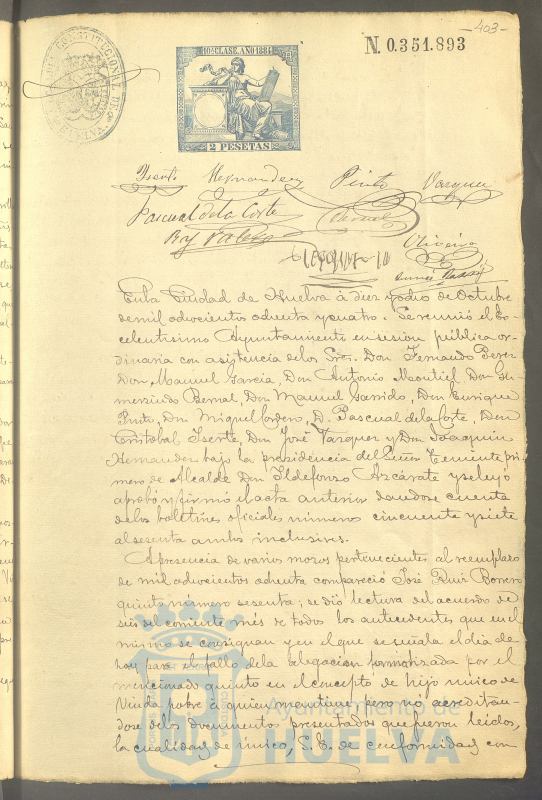 -403-
N. 0.351.893
10ª CLASE. AÑO 1884
2 PESETAS
Iserte Hernandez Pinto Vazquez
Pascual de la Corte
Oliveira
En la Ciudad de Huelva á diez y ocho de Octubre
de mil ochocientos ochenta y cuatro. Se reunió el Ex-
celentisimo Ayuntamiento en sesion pública or-
dinaria con asistencia de los Sres. Don Fernando Perez
Don Manuel Garcia, Don Antonio Montiel Don Gu-
mersindo Bernal, Don Manuel Garrido, Don Enrique
Pinto, Don Miguel Cordero, D. Pascual de la Corte, Don
Cristobal Iserte, Don José Vazquez y Don Joaquin
Hernandez bajo la presidencia del Señor Teniente pri-
mero de Alcalde Don Ildefonso Azcárate y se leyó
aprobó y firmó el acta anterior dandose cuenta
de los boletines oficiales número cincuenta y siete
al sesenta ambos inclusives.
A presencia de varios mozos pertenecientes al reemplazo
de mil ochocientos ochenta compareció José Ruiz Borrero
quinto número sesenta; se dió lectura del acuerdo de
seis del corriente mes de todos los antecedentes que en el
mismo se consignan y en el que se señala el dia de
hoy para el fallo de la alegacion formalizada por el
mencionado quinto en el concepto de hijo único de
Viuda pobre a quien mantiene pero no acreditan-
dose de los documentos presentados que fueron leidos,
la cualidad de único, S. E. de conformidad con
Ayuntamiento de
HUELVA